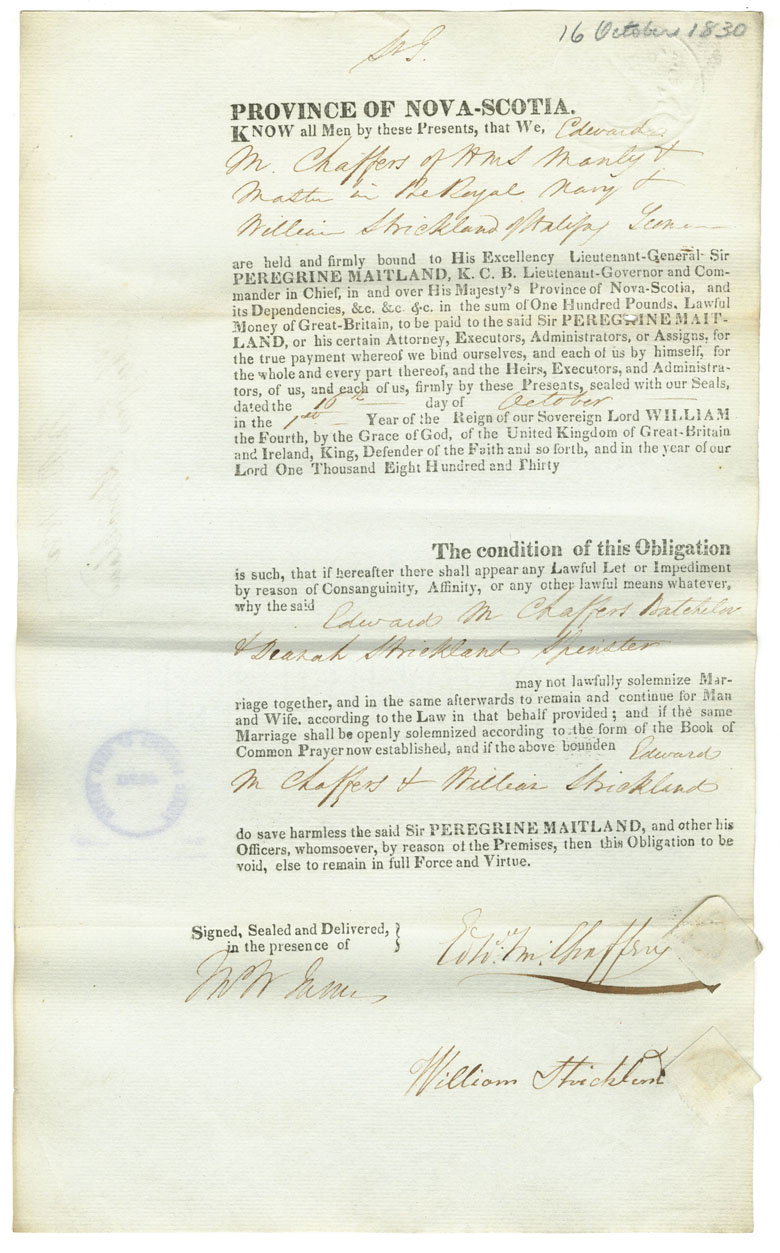 16 October 1830
PROVINCE OF NOVA-SCOTIA.
KNOW all Men by these Presents, that We, Edward
M. Chaffers of HMS Manly &
Master in the Royal Navy &
William Strickland of Halifax
are held and firmly bound to His Excellency Lieutenant-General Sir
PEREGRINE MAITLAND, K. C. B. Lieutenant-Governor and Com-
mander in Chief, in and over His Majesty's Province of Nova-Scotia, and
its Dependencies, &c. &c. &c. in the sum of One Hundred Pounds, Lawful
Money of Great-Britain, to be paid to the said Sir PEREGRINE MAIT-
LAND, or his certain Attorney, Executors, Administrators, or Assigns, for
the true payment whereof we bind ourselves, and each of us by himself, for
the whole and every part thereof, and the Heirs, Executors, and Administra-
tors, of us, and each of us, firmly by these Presents, sealed with our Seals,
dated the 16th day of October
in the 1st Year of the Reign of our Sovereign Lord WILLIAM
the Fourth, by the Grace of God, of the United Kingdom of Great-Britain
and Ireland, King, Defender of the Faith and so forth, and in the year of our
Lord One Thousand Eight Hundred and Thirty
The condition of this Obligation
is such, that if hereafter there shall appear any Lawful Let or Impediment
by reason of Consanguinity, Affinity, or any other lawful means whatever,
why the said
Edward M Chaffers Batchelor
& Dearah Strickland Spinster
may not lawfully solemnize Mar-
riage together, and in the same afterwards to remain and continue for Man
and Wife. according to the Law in that behalf provided; and if the same
Marriage shall be openly solemnized according to the form of the Book of
Common Prayer now established, and if the above bounden Edward
M Chaffers & William Strickland
do save harmless the said Sir PEREGRINE MAITLAND, and other his
Officers, whomsoever, by reason of the Premises, then this Obligation to be
void, else to remain in full Force and Virtue.
Signed, Sealed and Delivered, }
in the presence of
Edwd. M. Chaffers
William Strickland